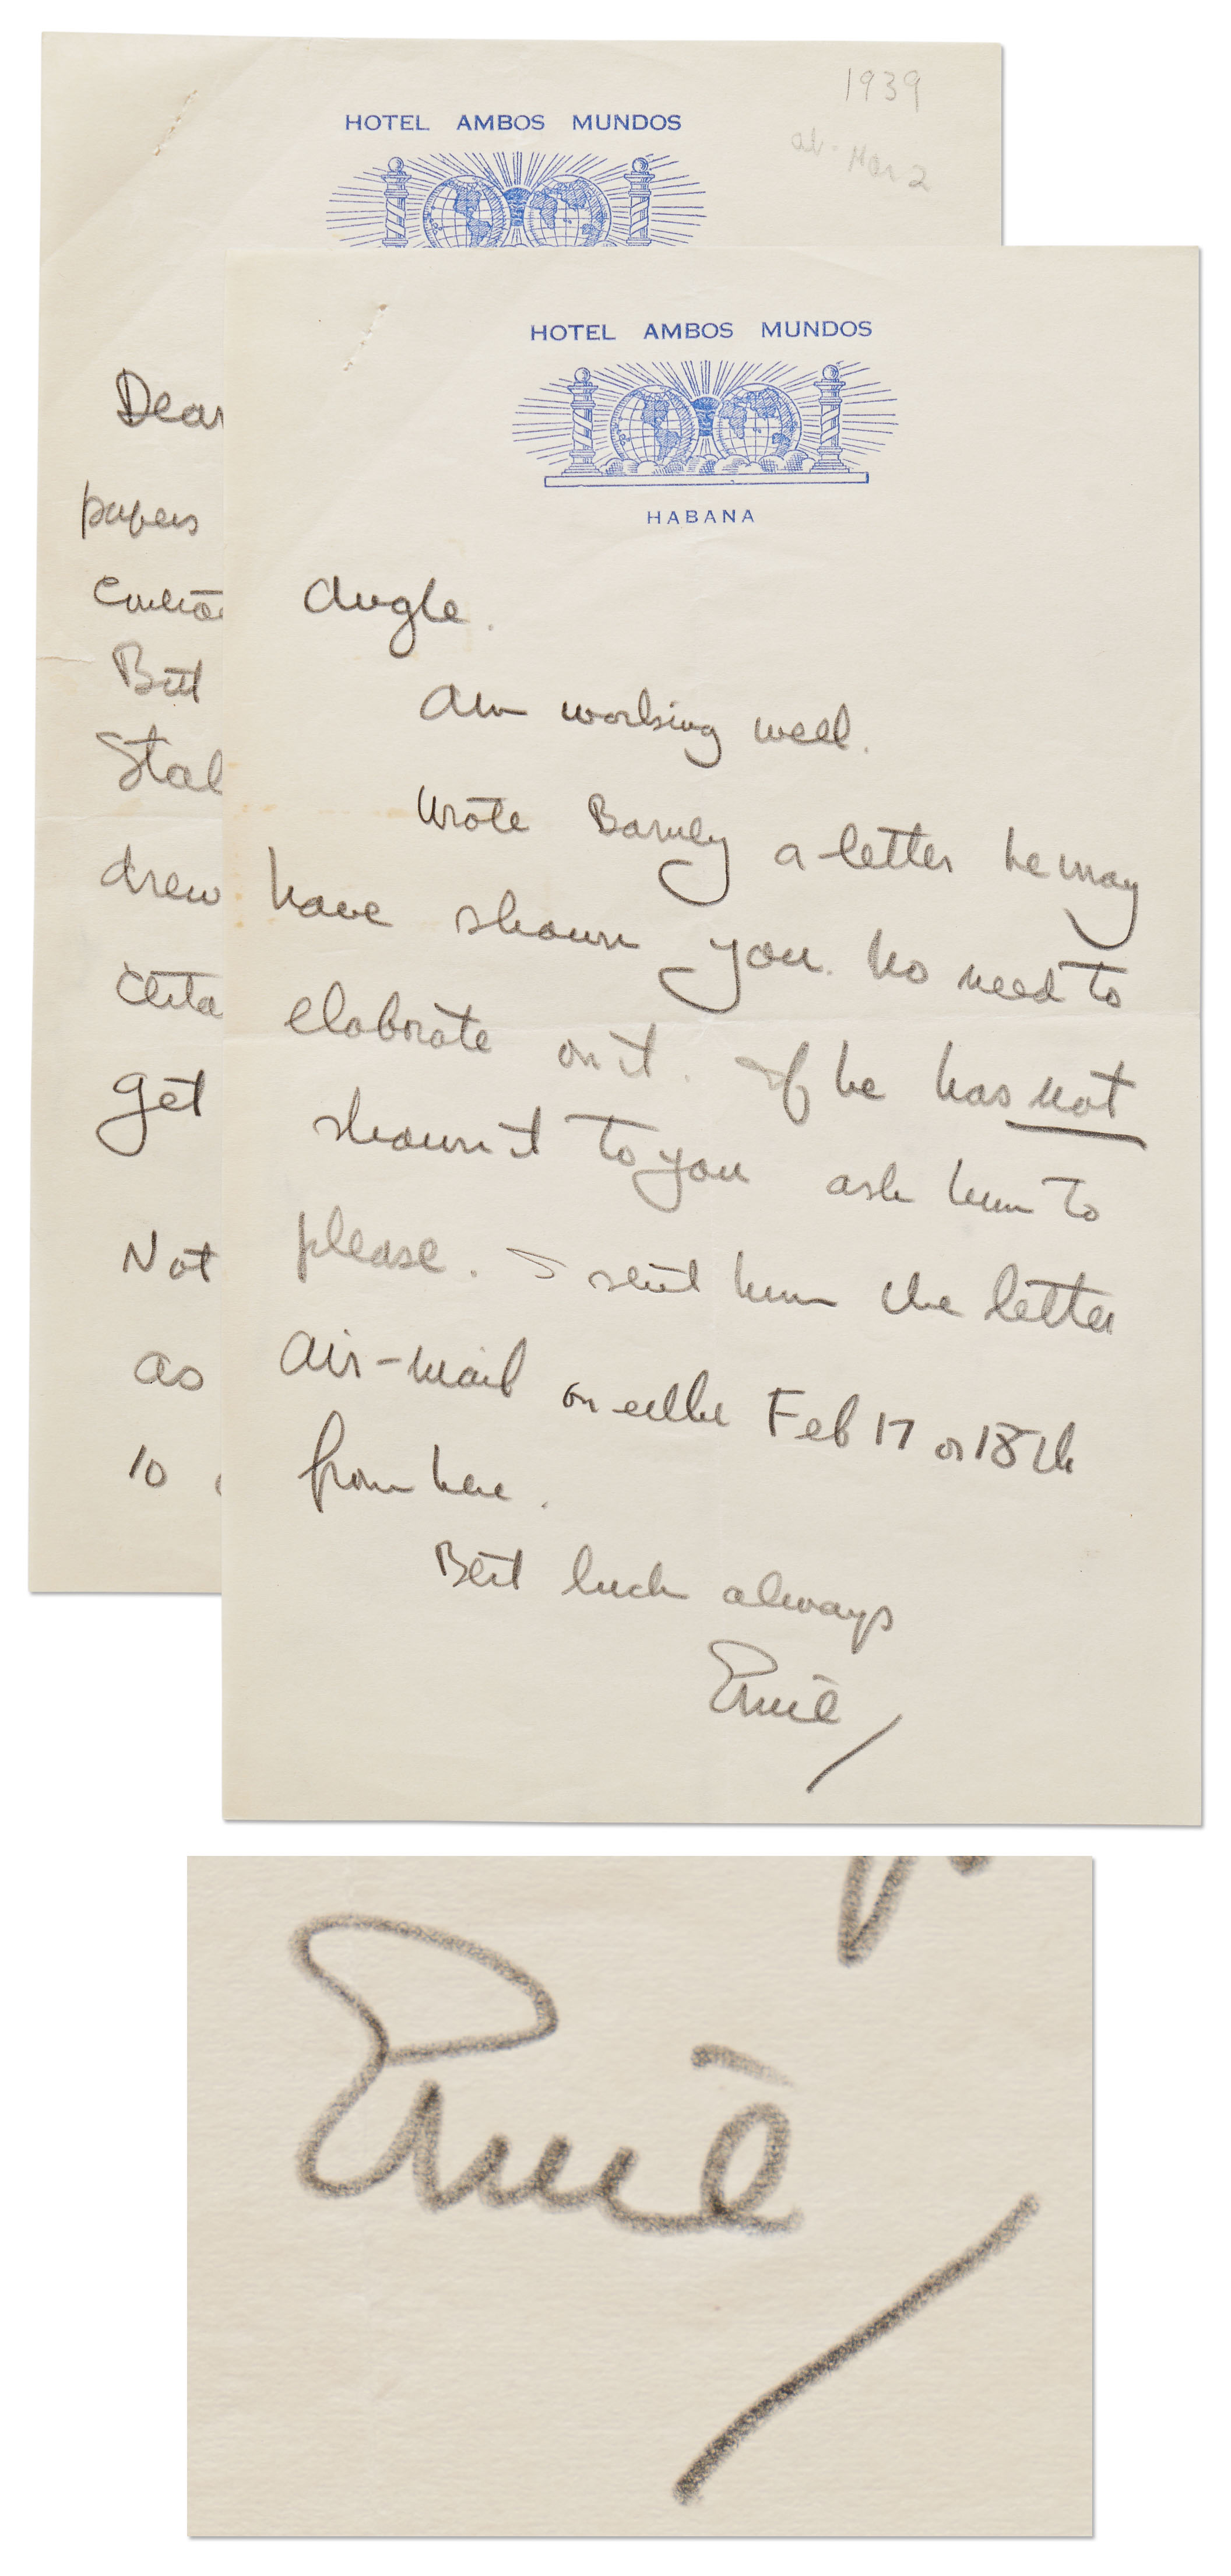 HOTEL AMBOS MUNDOS
1939
ab. Mar 2
Dear
papers
But
Stal
drew
get
Not
as
10
HOTEL AMBOS MUNDOS
HABANA
angle.
Am working well.
Wrote Barney a letter he may
have shown you. No need to
elaborate on it. If he has not
shown it to you ask him to
please. I sent him the letter
air-mail on either Feb 17 or 18th
from here.
Best luck always
Ernie
Ernie